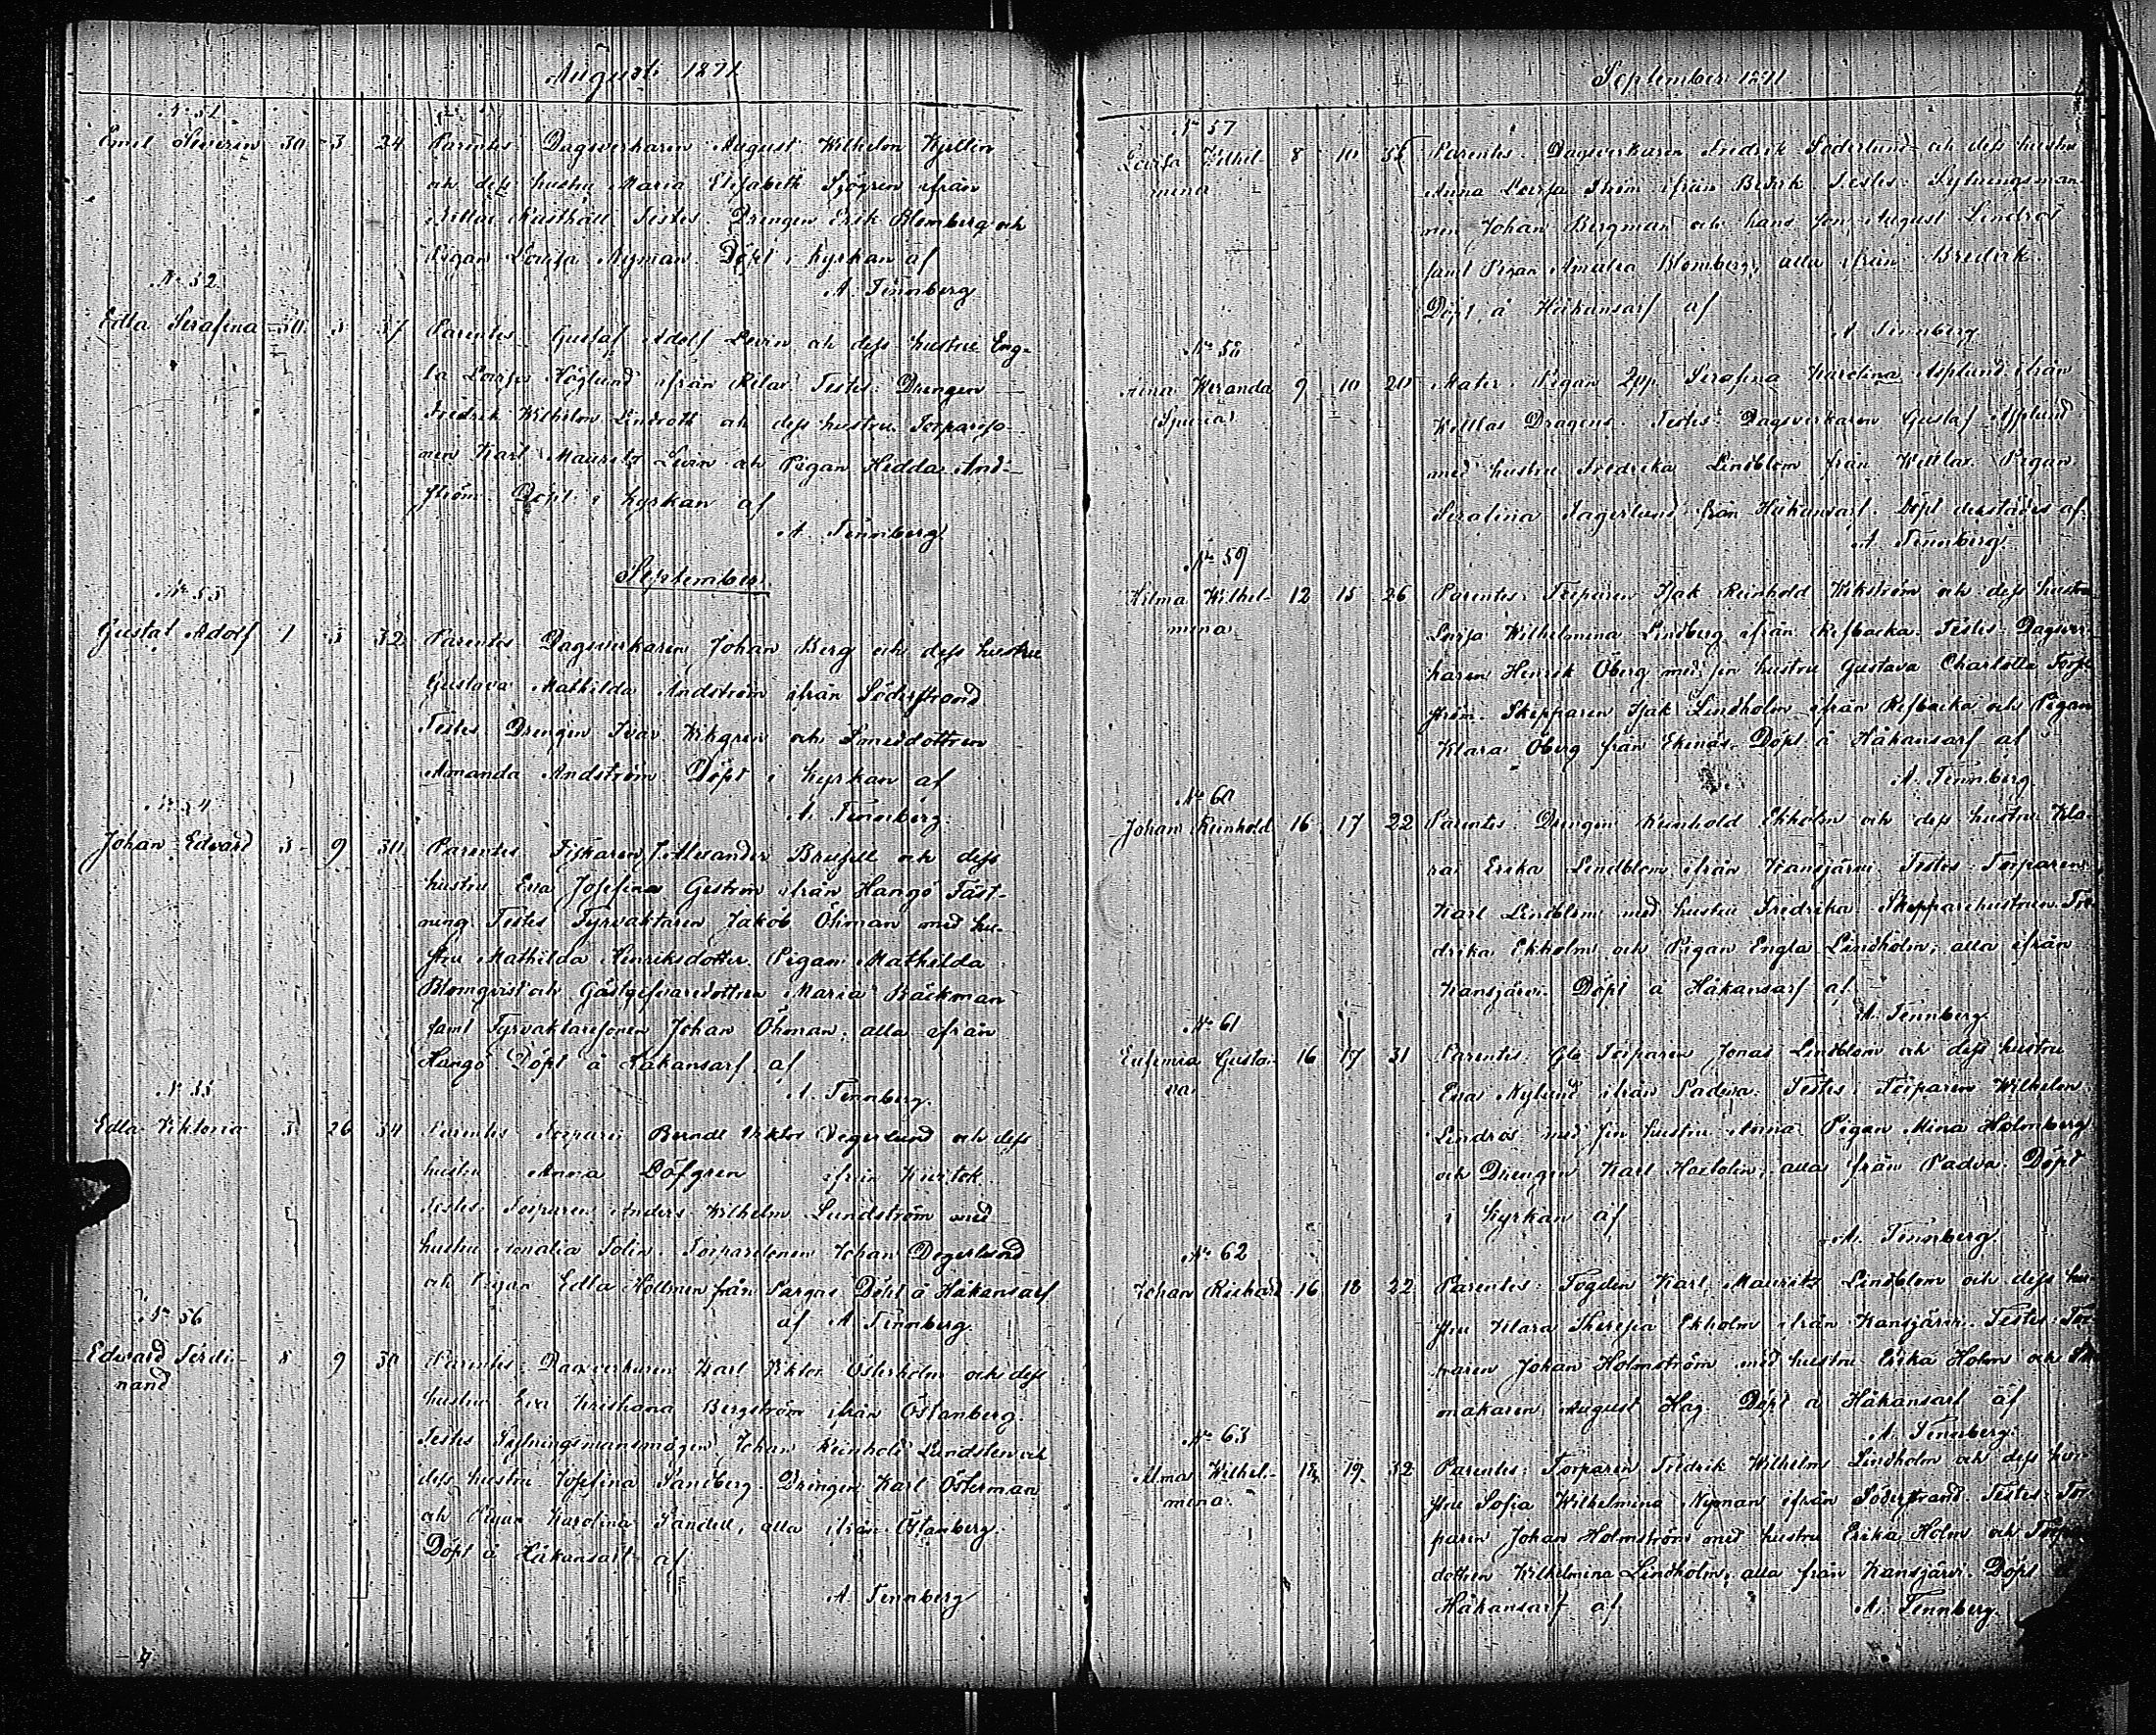 Augusti 1871
No 51
Emil Severin 30 3 24 Parentes Dagsverkaren August Wilhelm Kjellin
och dess hustru Maria Elisabeth Sjögren ifrån
Rusthåll Testes. Drengen Erik Blomberg och
Pigan Lovisa Nyman. Döpt i kyrkan af
A. Tennberg
No 52
Edla Serafina 30 3 Parentes. Gustaf Adolf Levin och dess hustru Eng-
la Lovisa Höglund ifrån Rilax Testes: Drengen
Fredrik Wilhelm Lindroth och dess hustru. Torpareso-
nen Karl Mauritz Levin och Pigan Hedda And-
ström. Döpt i kyrkan af
A. Tennberg
September.
No 53
Gustaf Adolf 1 3 32 Parentes Dagsverkaren Johan Berg och dess hustru
Gustava Mathilda Andström ifrån Söderstrand
Testes Drengen Ivar Wikgren och Smeddottren
Amanda Andström. Döpt i kyrkan af
A. Tennberg.
No 54
Johan Edvard 3 9 30 Parentes Fiskaren Alexander Brusell och dess
hustru Eva Josefina Genström ifrån Hangö Fäst-
ning Testes Fyrvaktaren Jakob Öhman med hu-
stru Mathilda Henriksdotter. Pigan Mathilda
Blomqvist och Gästgifvaredottren Maria Bäckman
samt Fyrvaktaresonen Johan Öhman, alla ifrån
Hangö. Döpt å Håkansarf af
A. Tennberg.
No 55
Edla Viktoria 3 26 34 Parentes Torparen Berndt Viktor Degerlund och dess
hustru Anna Löfgren ifrån
Testes: Torparen Anders Wilhelm Lundström med
hustru Amalia Tolin. Torparesonen Johan Degerlund
och Pigan Edla Hollmen från Pargas Döpt å Håkansarf
af A Tennberg.
No 56
Edvard Ferdi- 8 9 30 Parentes. Dagsverkaren Karl Viktor Österholm och dess
nand
hustru Eva Kristiana Bergström ifrån Östanberg.
Testes Fylningsmansmågen Johan Reinhold Lundsten och
dess hustru Josefina Sandberg. Drengen Karl Österman
och Pigan Karolina Sandell, alla ifrån Östanberg.
Döpt å Håkansarf af
A Tennberg
September 1871
No 57
Lovisa Wilhel- 8 10 Parentes. Dagsverkaren Fredrik Söderlund och dess hustru
mina
Anna Lovisa Ström ifrån Bredvik Testes: Fylningsman-
nen Johan Bergman och hans son August Lindros
samt Pigan Amalia Blomberg, alla ifrån Bredvik.
Döpt å Håkansarf af
A Tennberg
No 58
Aina Weranda 9 10 20 Mater. Pigan Serafina Karolina Asplund ifrån
(Spuria)
Dragons. Testes: Dagsverkaren Gustaf Asplund
med hustru Fredrika Lindblom från Pigan
Serafina Fagerlund från Håkansarf. Döpt derstädes af
A. Tennberg.
No 59
Hilma Wilhel- 12 15 26 Parentes. Torparen Isak Reinhold Wikström och dess hustru
mina
Lovisa Wilhelmina Lindberg ifrån Refbacka. Testes: Dagsver-
karen Henrik Öberg med sin hustru Gustava Charlotta
ström. Skepparen Isak Lindholm ifrån Refbacka och Pigan
Klara Öberg från Ekenäs. Döpt å Håkansarf af
A. Tennberg.
No 60
Johan Reinhold 16 17 22 Parentes. Drengen Reinhold Ekholm och dess hustru Kla-
ra Erika Lindblom ifrån Kansjärvi Testes: Torparen
Karl Lindblom med hustru Fredrika. Skepparehustrun Fre-
drika Ekholm och Pigan Engla Lindholm, alla ifrån
Kansjärvi. Döpt å Håkansarf af
A. Tennberg
No 61
Eufemia Gusta- 16 17 31 Parentes. Torparen Jonas Lindblom och dess hustru
va
Eva Nylund ifrån Padva. Testes. Torparen Wilhelm
Lindros med sin hustru Anna. Pigan Mina Holmberg
och Drengen Karl alla från Padva. Döpt
i kyrkan af
A. Tennberg
No 62
Johan Richard 16 18 22 Parentes: Fogden Karl Mauritz Lindblom och dess hu-
stru Klara Theresia Ekholm ifrån Kansjärvi. Testes Tor-
paren Johan Holmström med hustru Erika Holm och
makaren August Häg. Döpt å Håkansarf af
A. Tennberg.
No 63
Alma Wilhel- 18 19 32 Parentes: Torparen Fredrik Wilhelm Lindholm och dess hu-
mina
stru Sofia Wilhelmina Nyman ifrån Söderstrand. Testes: Tor-
paren Johan Holmström med hustru Erika Holm och
dottren Wilhelmina Lindholm, alla från Kansjärvi. Döpt
Håkansarf af A. Tennberg.